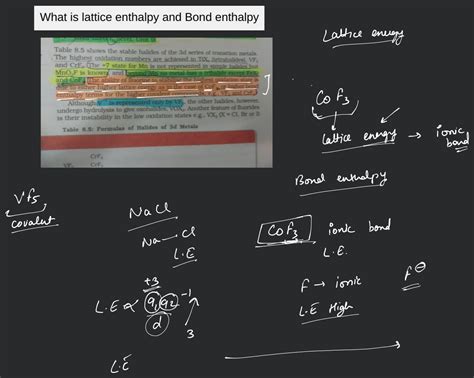 What is lattice enthalpy and Bond enthalpy
Table 8.5 shows the stable halides of the 3d series of transition metals.
The highest oxidation numbers are achieved in TiX₄ (tetrahalides), VF₅
and CrF₆. The +7 state for Mn is not represented in simple halides but
MnO₃F is known, and beyond Mn no metal has a trihalide except FeX₃
and CoF₃.
either higher lattice
enthalpy terms for the higher
Although V⁺⁵ is represented only by VF₅, the other halides, however,
undergo hydrolysis to give oxohalides, VOX₃. Another feature of fluorides
is their instability in the low oxidation states e.g., VX₂ (X = Cl, Br or I)
Table 8.5: Formulas of Halides of 3d Metals
CrF₆
VF₅ CrF₅
Lattice energy
CoF₃
Lattice energy → ionic
bond
Bond enthalpy
VF₅
covalent
NaCl
Na — Cl
L.E
CoF₃ ionic bond
L.E.
F → ionic F⊖
L.E High
+3
L.E ∝ q₁ q₂ -1
d
3
L.E